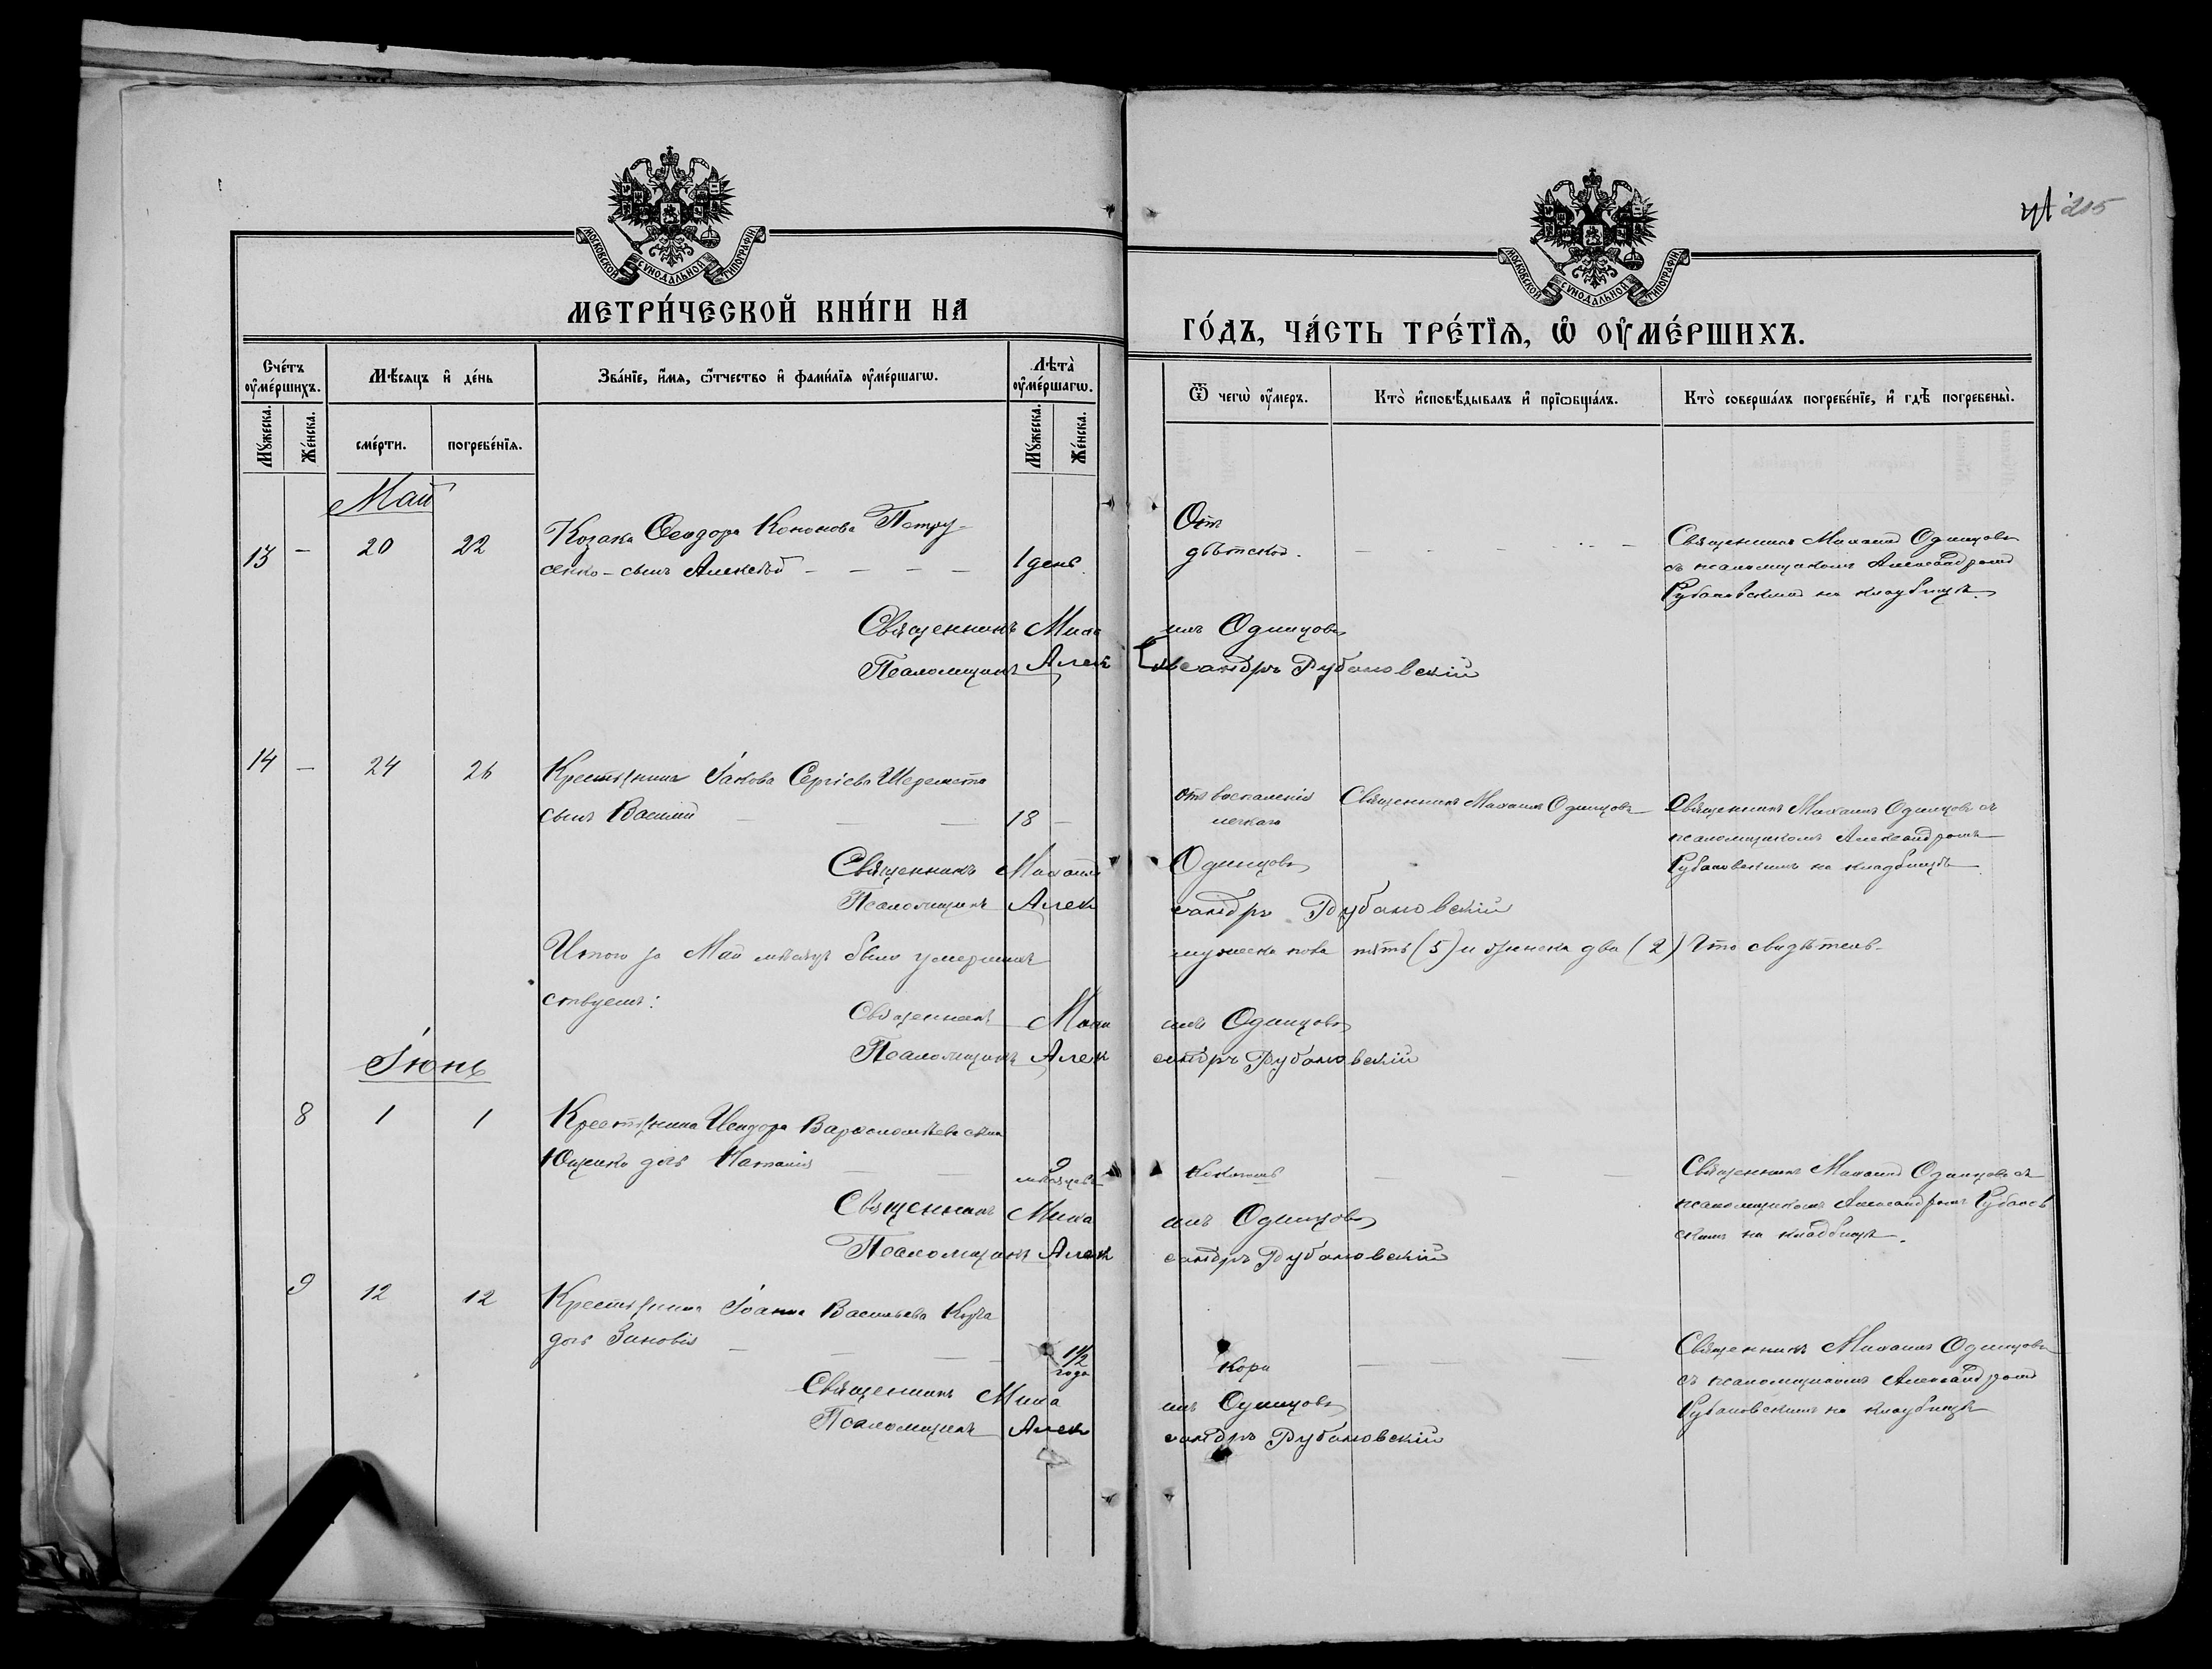 215
МОСКОВСКОЙ СѴНОДАЛЬНОЙ ТИПОГРАФІИ
МЕТРИ́ЧЕСКОЙ КНИ́ГИ НА
МОСКОВСКОЙ СѴНОДАЛЬНОЙ ТИПОГРАФІИ
ГО́ДЪ, ЧА́СТЬ ТРЕ́ТІѦ, Ѡ ОУ҆МЕ́РШИХЪ.
Сче́тъ оу҆ме́ршихъ.
Мꙋ́жеска.
Же́нска.
Мѣ́сѧцъ и҆ де́нь
сме́рти.
погребе́нїѧ.
Зва́нїе, и҆́мѧ, ѻ҆́тчество и҆ фами́лїѧ оу҆ме́ршагѡ.
Лѣта̀ оу҆ме́ршагѡ.
Мꙋ́жеска.
Же́нска.
Ѿ чегѡ̀ оу҆́меръ.
Кто̀ и҆сповѣ́дывалъ и҆ прїѡбща́лъ.
Кто̀ соверша́лъ погребе́нїе, и҆ гдѣ̀ погребены̀.
Май
13 — 20 22
Козака Ѳеодора Кононова Петру-
сенко - сынъ Алексѣй — — — — 1 день.
Отъ
дѣтской.
Священникъ Михаилъ Одинцовъ
съ псаломщикомъ Александромъ
Рубановскимъ на кладбищѣ.
Священникъ Михаилъ Одинцовъ
Псаломщикъ Александръ Рубановскій
14 — 24 26
Крестьянина Іакова Сергіева Шеремета
сынъ Василій — — — 18 —
отъ воспаленія
легкаго
Священникъ Михаилъ Одинцовъ
Священникъ Михаилъ Одинцовъ съ
псаломщикомъ Александромъ
Рубановскимъ на кладбищѣ.
Священникъ Михаилъ Одинцовъ
Псаломщикъ Александръ Рубановскій
Итого за Май мѣсяцъ было умершихъ мужеска пола пять (5) и женска два (2) Что свидѣтель-
ствуемъ:
Священникъ Михаилъ Одинцовъ
Псаломщикъ Александръ Рубановскій
Іюнь
8 1 1
Крестьянина Ѳеодора Варѳоломѣева сына
Ющенко дочь Наталія — — мѣсяцевъ
Коклюшъ
Священникъ Михаилъ Одинцовъ съ
псаломщикомъ Александромъ Рубанов
скимъ на кладбищѣ.
Священникъ Михаилъ Одинцовъ
Псаломщикъ Александръ Рубановскій
9 12 12
Крестьянина Іоанна Васильева
дочь Зиновія — — — 1½
года
Кори
Священникъ Михаилъ Одинцовъ
съ псаломщикомъ Александромъ
Рубановскимъ на кладбищѣ
Священникъ Михаилъ Одинцовъ
Псаломщикъ Александръ Рубановскій